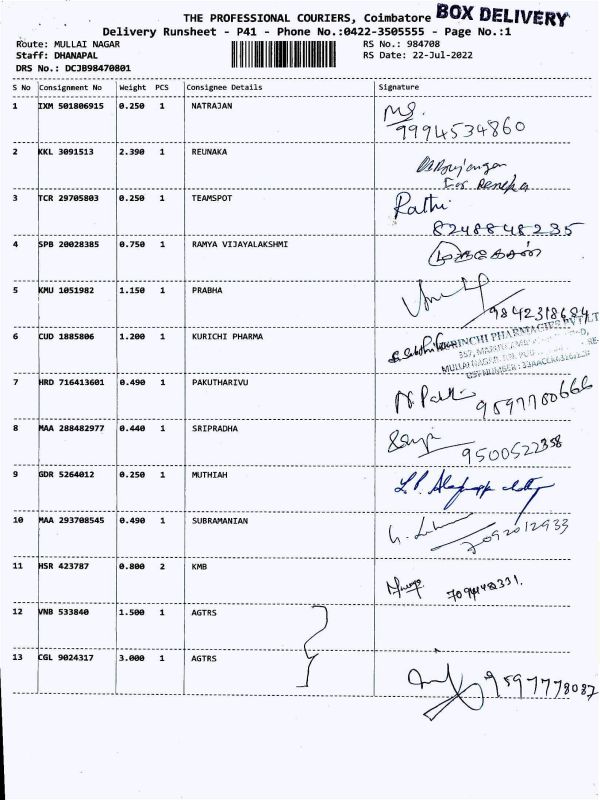 THE PROFESSIONAL COURIERS, Coimbatore BOX DELIVERY
Delivery Runsheet - P41 - Phone No.:0422-3505555 - Page No.:1
Route: MULLAI NAGAR RS No.: 984708
Staff: DHANAPAL RS Date: 22-Jul-2022
DRS No.: DCJB98470801
S No Consignment No Weight PCS Consignee Details Signature
1 IXM 501806915 0.250 1 NATRAJAN
9994534860
2 KKL 3091513 2.390 1 REUNAKA
For Renuka
3 TCR 29705803 0.250 1 TEAMSPOT Rathi
8248848235
4 SPB 20028385 0.750 1 RAMYA VIJAYALAKSHMI
5 KMU 1051982 1.150 1 PRABHA
9842318684
6 CUD 1885806 1.200 1 KURICHI PHARMA
7 HRD 716413601 0.490 1 PAKUTHARIVU
9597780666
8 MAA 288482977 0.440 1 SRIPRADHA
9500522358
9 GDR 5264012 0.250 1 MUTHIAH
10 MAA 293708545 0.490 1 SUBRAMANIAN
7092012933
11 HSR 423787 0.800 2 KMB
12 VNB 533840 1.500 1 AGTRS
13 CGL 9024317 3.000 1 AGTRS
9597778087